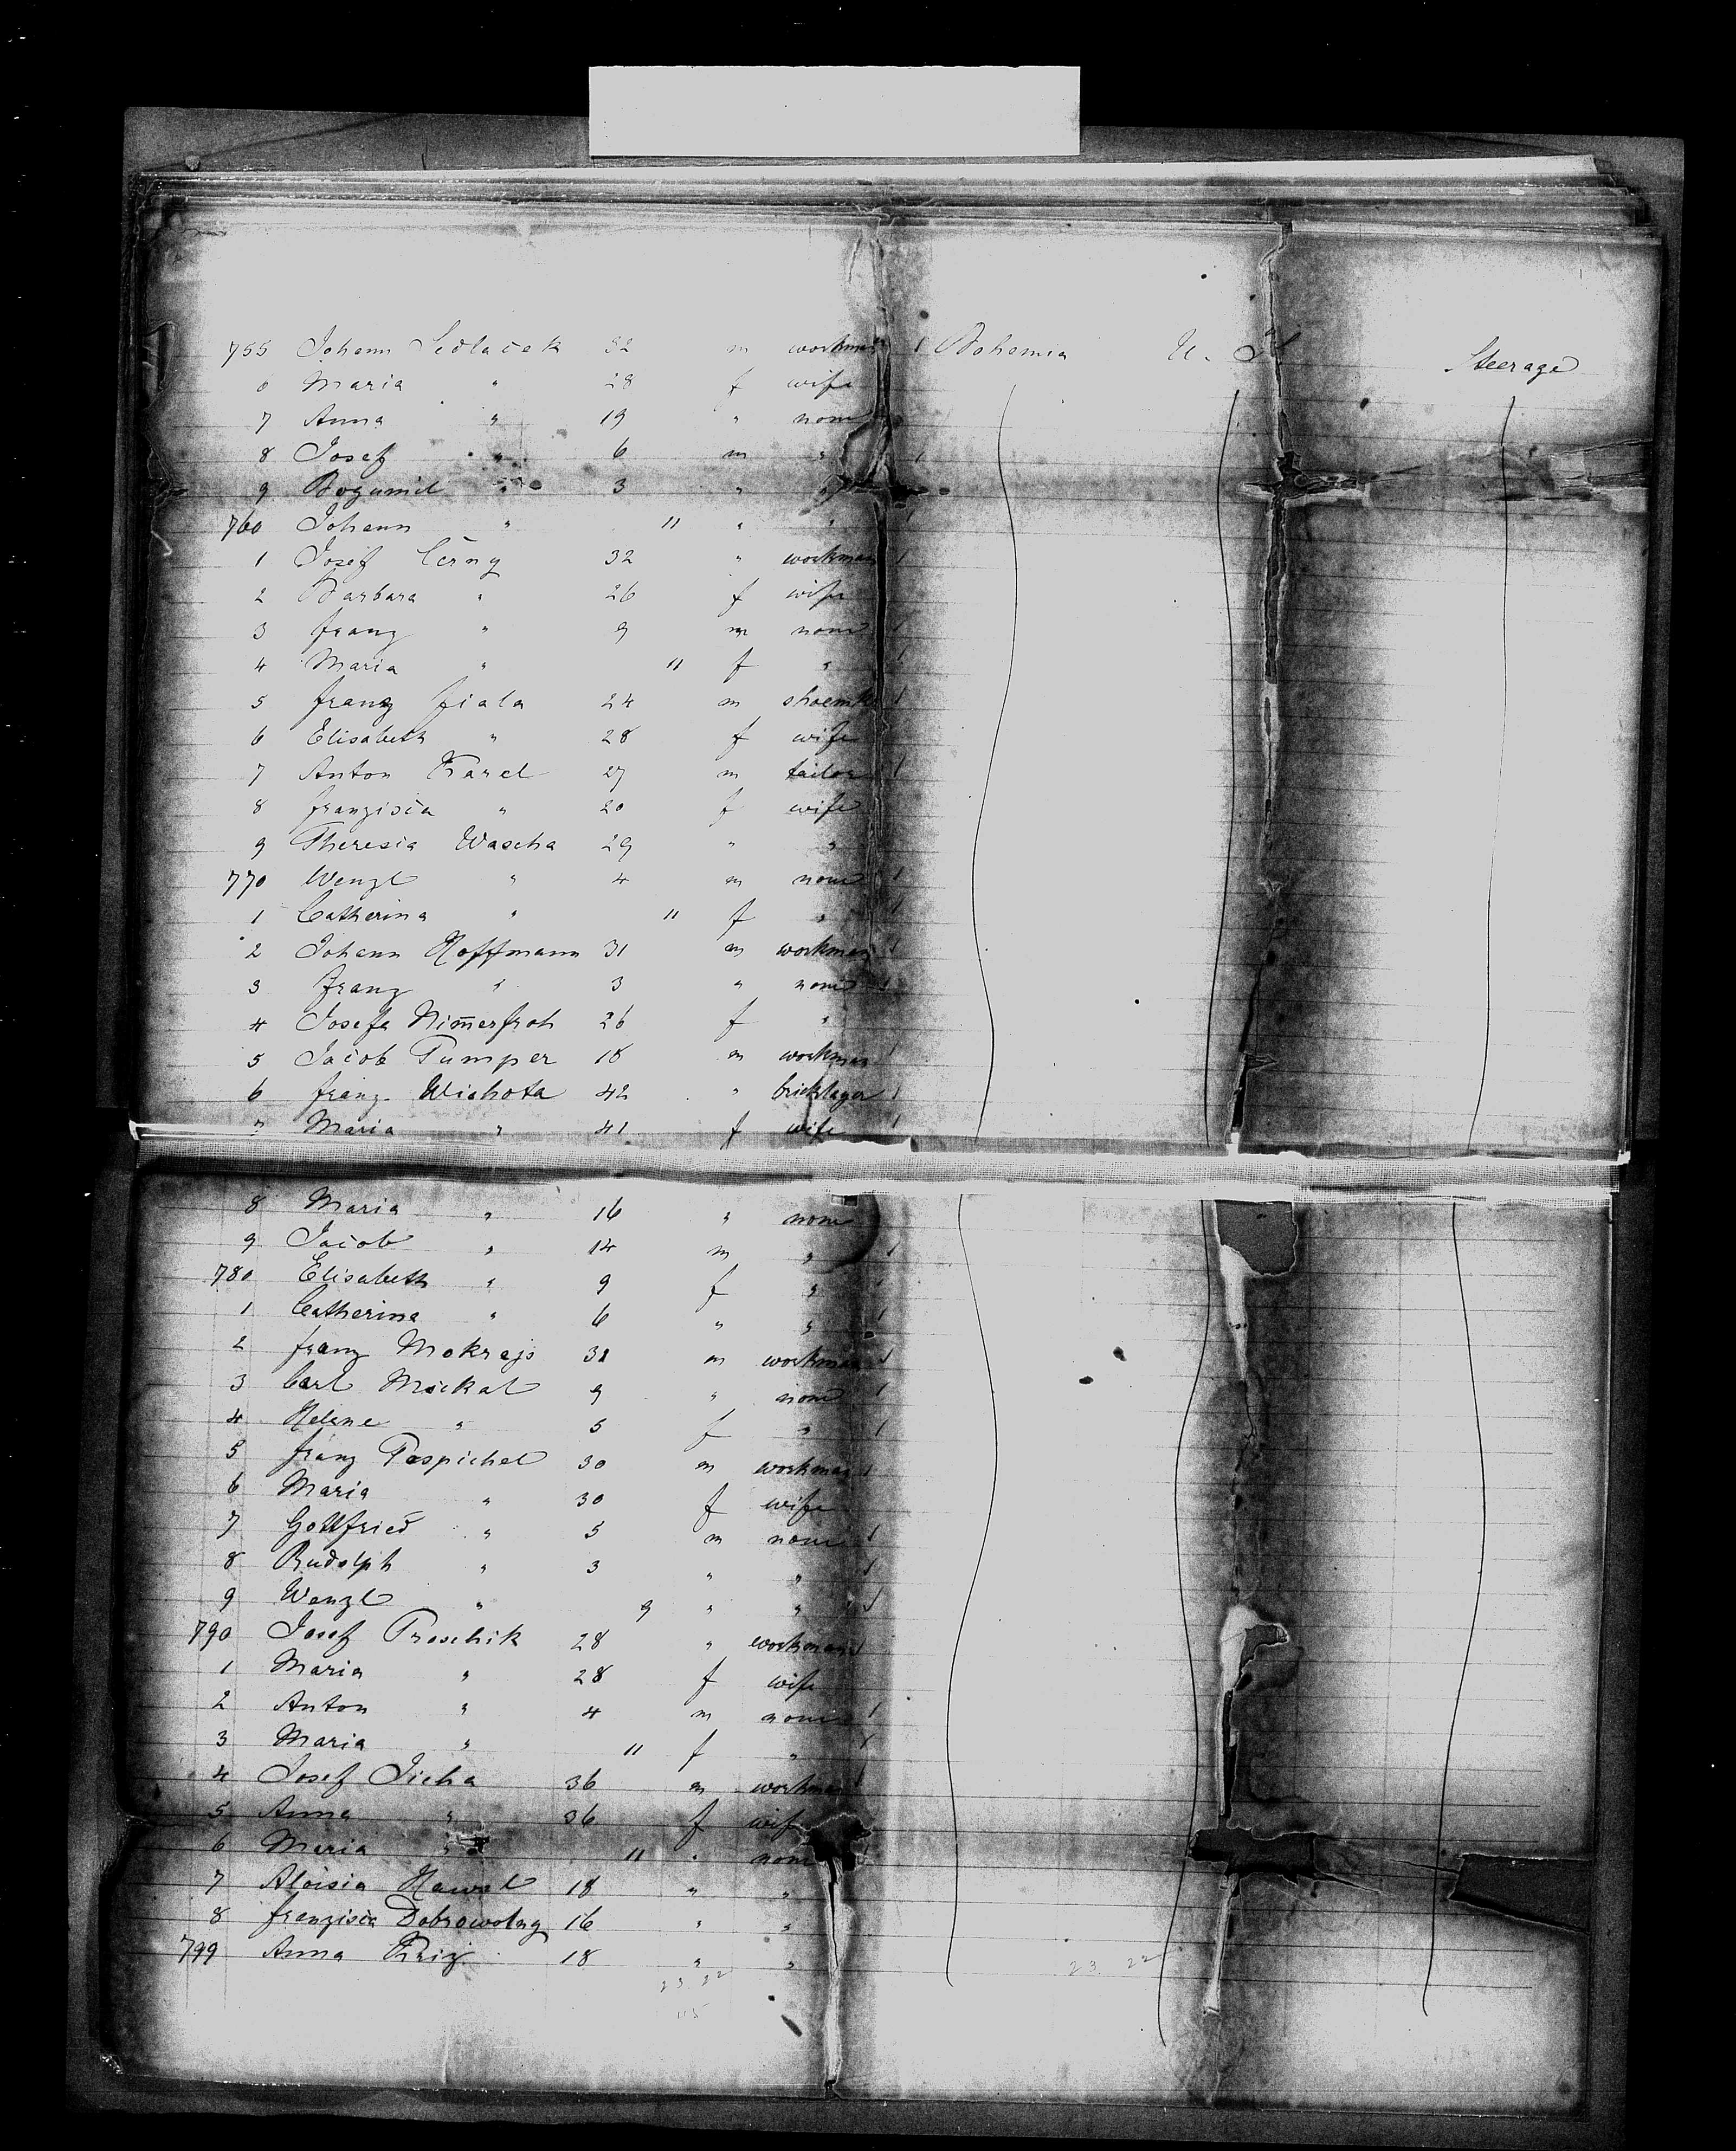 755 Johann Sedlacek 32 m workman 1 Bohemia U. S. Steerage
6 Maria " 28 f wife
7 Anna " 19 " none
8 Josef " 6 m " 1
9 Bogumil " 3 " "
760 Johann " 11 " " 1
1 Josef Černy 32 " workman 1
2 Barbara " 26 f wife
3 Franz " 9 m none 1
4 Maria " 11 f " 1
5 Franz Fiala 24 m shoemk 1
6 Elisabeth " 28 f wife
7 Anton Karel 27 m tailor 1
8 Franzisca " 20 f wife
9 Theresia Wascha 29 " "
770 Wenzl " 4 m none 1
1 Catherina " 11 f " 1
2 Johann Hoffmann 31 m workman 1
3 Franz " 3 " none 1
4 Josefa Nim̄erfroh 26 f "
5 Jacob Pumper 18 m workman 1
6 Franz. Wichota 42 " bricklayer 1
7 Maria " 41 f wife 1
8 Maria " 16 " none
9 Jacob " 14 m " 1
780 Elisabeth " 9 f " 1
1 Catherina " 6 " " 1
2 Franz Mokrejs 31 m workman 1
3 Carl Mickal 9 " none 1
4 Helene " 5 f " 1
5 Franz Pospichel 30 m workman 1
6 Maria " 30 f wife
7 Gottfried " 5 m none 1
8 Rudolph " 3 " " 1
9 Wenzl " 9 " " 1
790 Josef Proschik 28 " workman 1
1 Maria " 28 f wife
2 Anton " 4 m none 1
3 Maria " 11 f " 1
4 Josef Jicha 36 m workman 1
5 Anna " 36 f wife
6 Maria " 11 " none
7 Aloisia Hawel 18 " "
8 Franzisca Dobrowolny 16 " "
799 Anna Kriz 18 " "
23. 22 23. 22
45